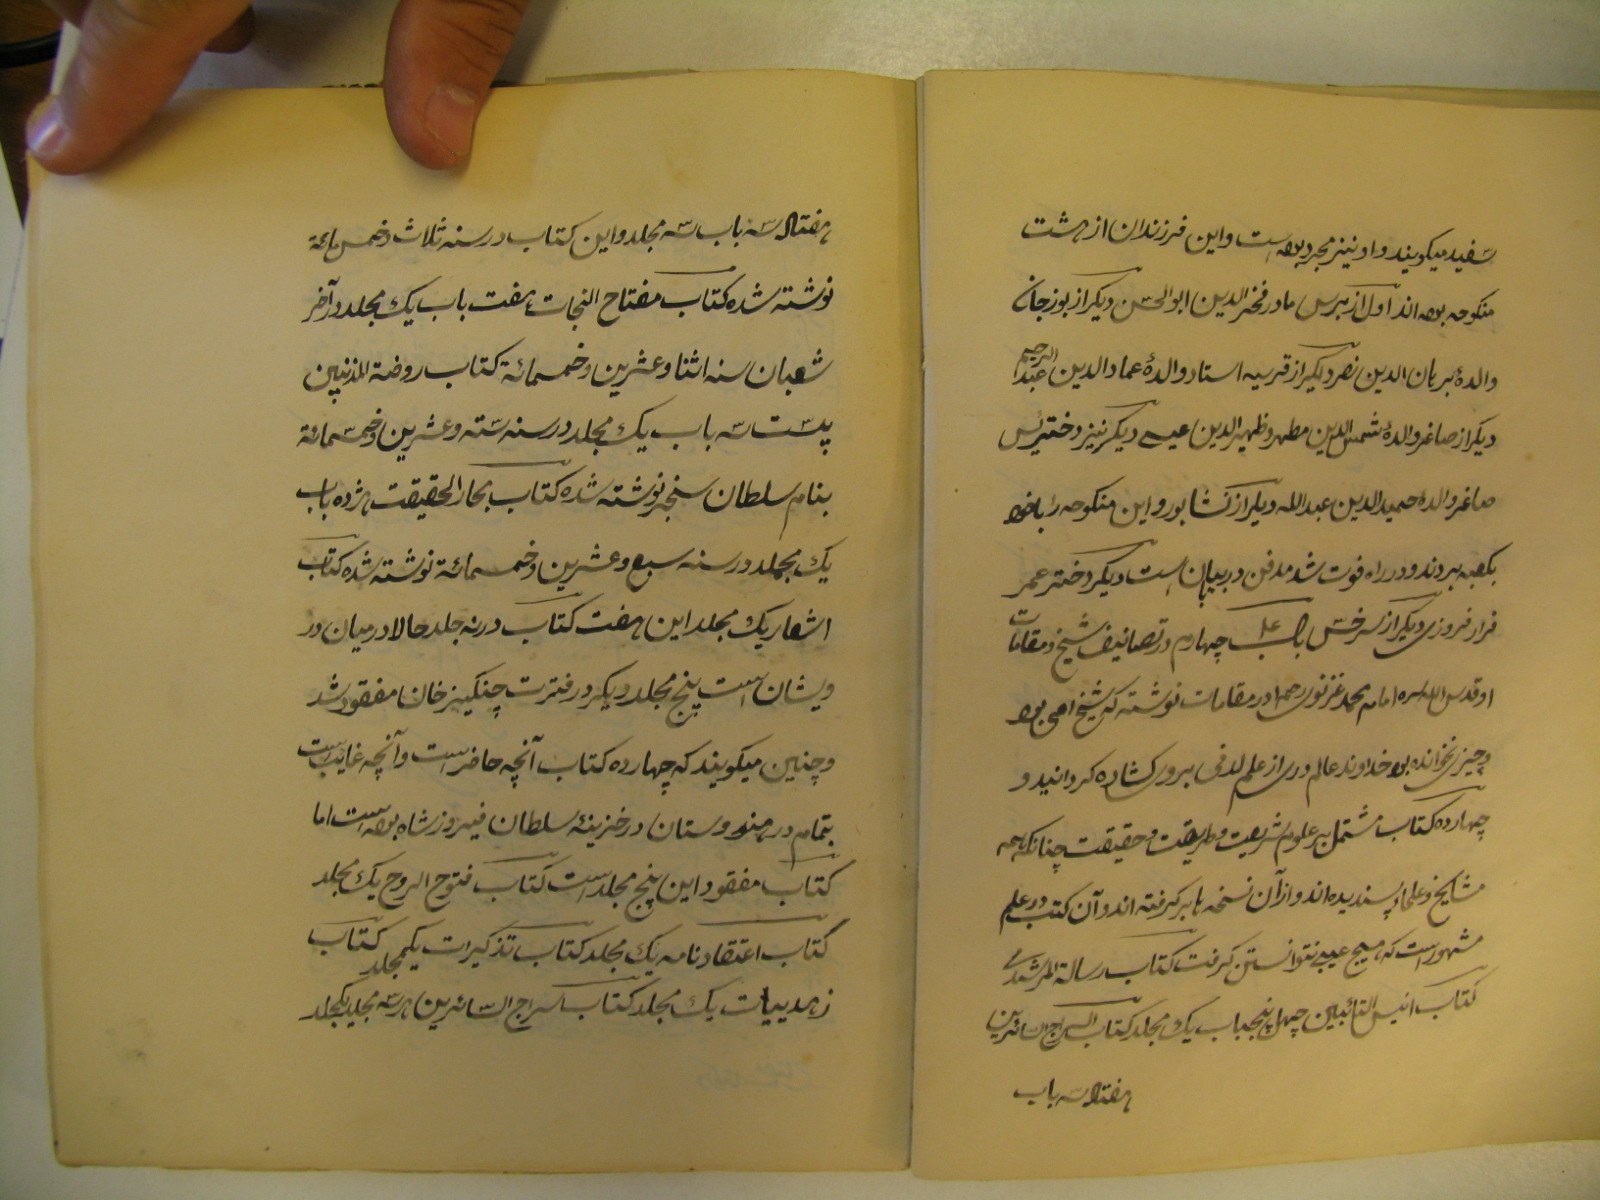 سفید میکویند و او نیز مجرد بوده است و این فرزندان از هشت
منکوحه بوده اند اول از ببرس مادر فخر الدین ابو الحسن دیکر از بوزجان
والدهٔ برهان الدین نصر دیکر از قریه استاد والدهٔ عماد الدین عبد الرحیم
دیکر از صاغر والدهٔ شمس الدین مطهر و ظهیر الدین عیسی دیکر نیز دختر رئیس
صاغر والدهٔ حمید الدین عبد الله دیکر از نشابور و این منکوحه را باخود
بکعبه بردند و در راه فوت شد مدفن در بیابان است دیکر دختر عمر
فرار فروزی دیکر از سرخس باب چهارم در تصانیف شیخ و مقامات
او قدس الله سره امام محمد غزنوی رحمه در مقامات نوشته که شیخ امی بود
و چیزی نخوانده بود خداوند عالم دری از علم لدنی بروی کشاده کردانید و
چهارده کتاب مشتمل بر علوم شریعت و طریقت و حقیقت چنانکه همه
مشایخ و علما پسندیده اند و از آن نسخه ها بر کرفته اند و آن کتب در علم
مشهور است که هیچ عیبی نتوانستن کرفت کتاب رسالة المرشدی
کتاب انیس التائبین چهل پنجباب یک مجلد کتاب السراج السائرین
هفتاد سه باب
هفتاد سه باب سه مجلد و این کتاب در سنه ثلاث و خمس مائة
نوشته شده کتاب مفتاح النجات هفت باب یک مجلد در آخر
شعبان سنه اثنا و عشرین و خمسمائة کتاب روضة المذنبین
بیست سه باب یک مجلد در سنه سته و عشرین و خمسمائة
بنام سلطان سنجر نوشته شده کتاب بحار الحقیقت هژده باب
یک مجلد در سنه سبع و عشرین و خمسمائة نوشته شده کتاب
اشعار یک مجلد این هفت کتاب در نه جلد حالا درمیان در
ویشان است پنج مجلد دیکر در فترت چنکیز خان مفقود شد
و چنین میکویند که چهارده کتاب آنچه حاضر است و آنچه غایب است
بتمام در هندوستان در خزینهٔ سلطان فیروز شاه بوده است اما
کتاب مفقود این پنج مجلد است کتاب فتوح الروح یک مجلد
کتاب اعتقاد نامه یک مجلد کتاب تذکیرات یکمجلد کتاب
زهدییات یک مجلد کتاب سراج السائرین هر سه مجلد یکجلد